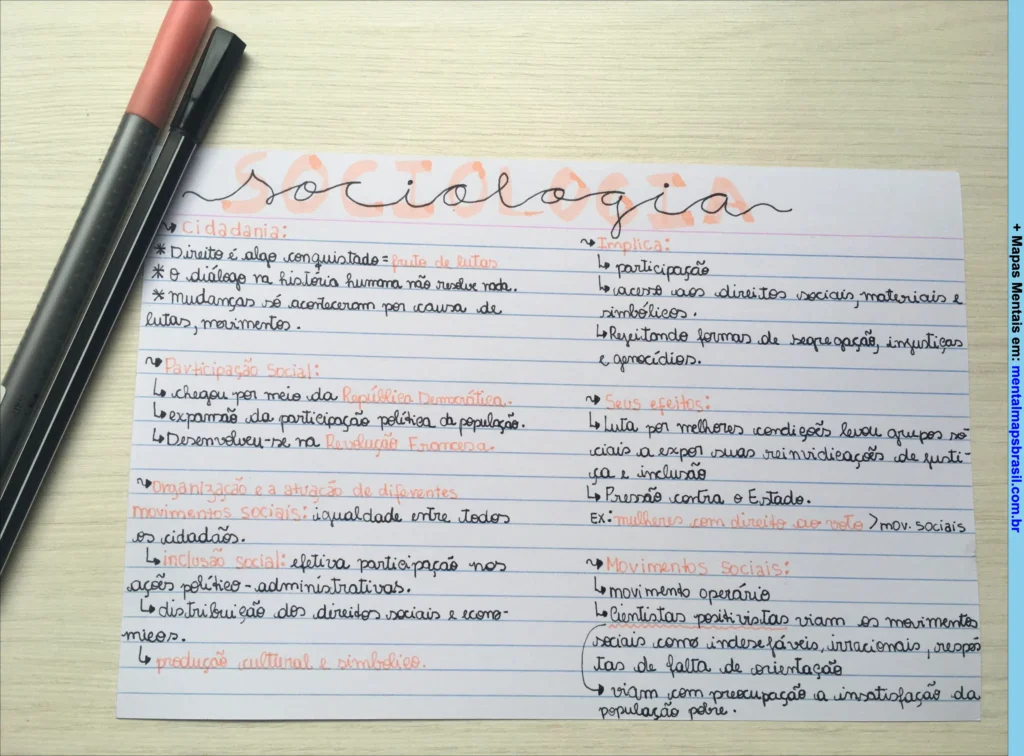 SOCIOLOGIA
sociologia
Cidadania:
* Direito é algo conquistado = fruto de lutas
* O diálogo na história humana não resolve nada.
* Mudanças só aconteceram por causa de
lutas, movimentos.
Participação Social:
↳ chegou por meio da República Democrática.
↳ expansão da participação política da população.
↳ Desenvolveu-se na Revolução Francesa.
Organização e a atuação de diferentes
movimentos sociais: igualdade entre todos
os cidadãos.
↳ inclusão social: efetiva participação nos
ações político-administrativas.
↳ distribuição dos direitos sociais e econo-
micos.
↳ produção cultural e simbólico.
Implica:
↳ participação
↳ acesso aos direitos sociais, materiais e
simbólicos.
↳ Rejeitando formas de segregação, injustiças
e genocídios.
Seus efeitos:
↳ Luta por melhores condições levou grupos so-
ciais a expor suas reinvidicações de justi-
ça e inclusão
↳ Pressão contra o Estado.
EX: mulheres com direito ao voto > mov. sociais
Movimentos Sociais:
↳ movimento operário
↳ Cientistas positivistas viam os movimentos
sociais como indesejáveis, irracionais, respos
tas de falta de orientação
↳ viam com preocupação a insatisfação da
população pobre.
+ Mapas Mentais em: mentalmapsbrasil.com.br